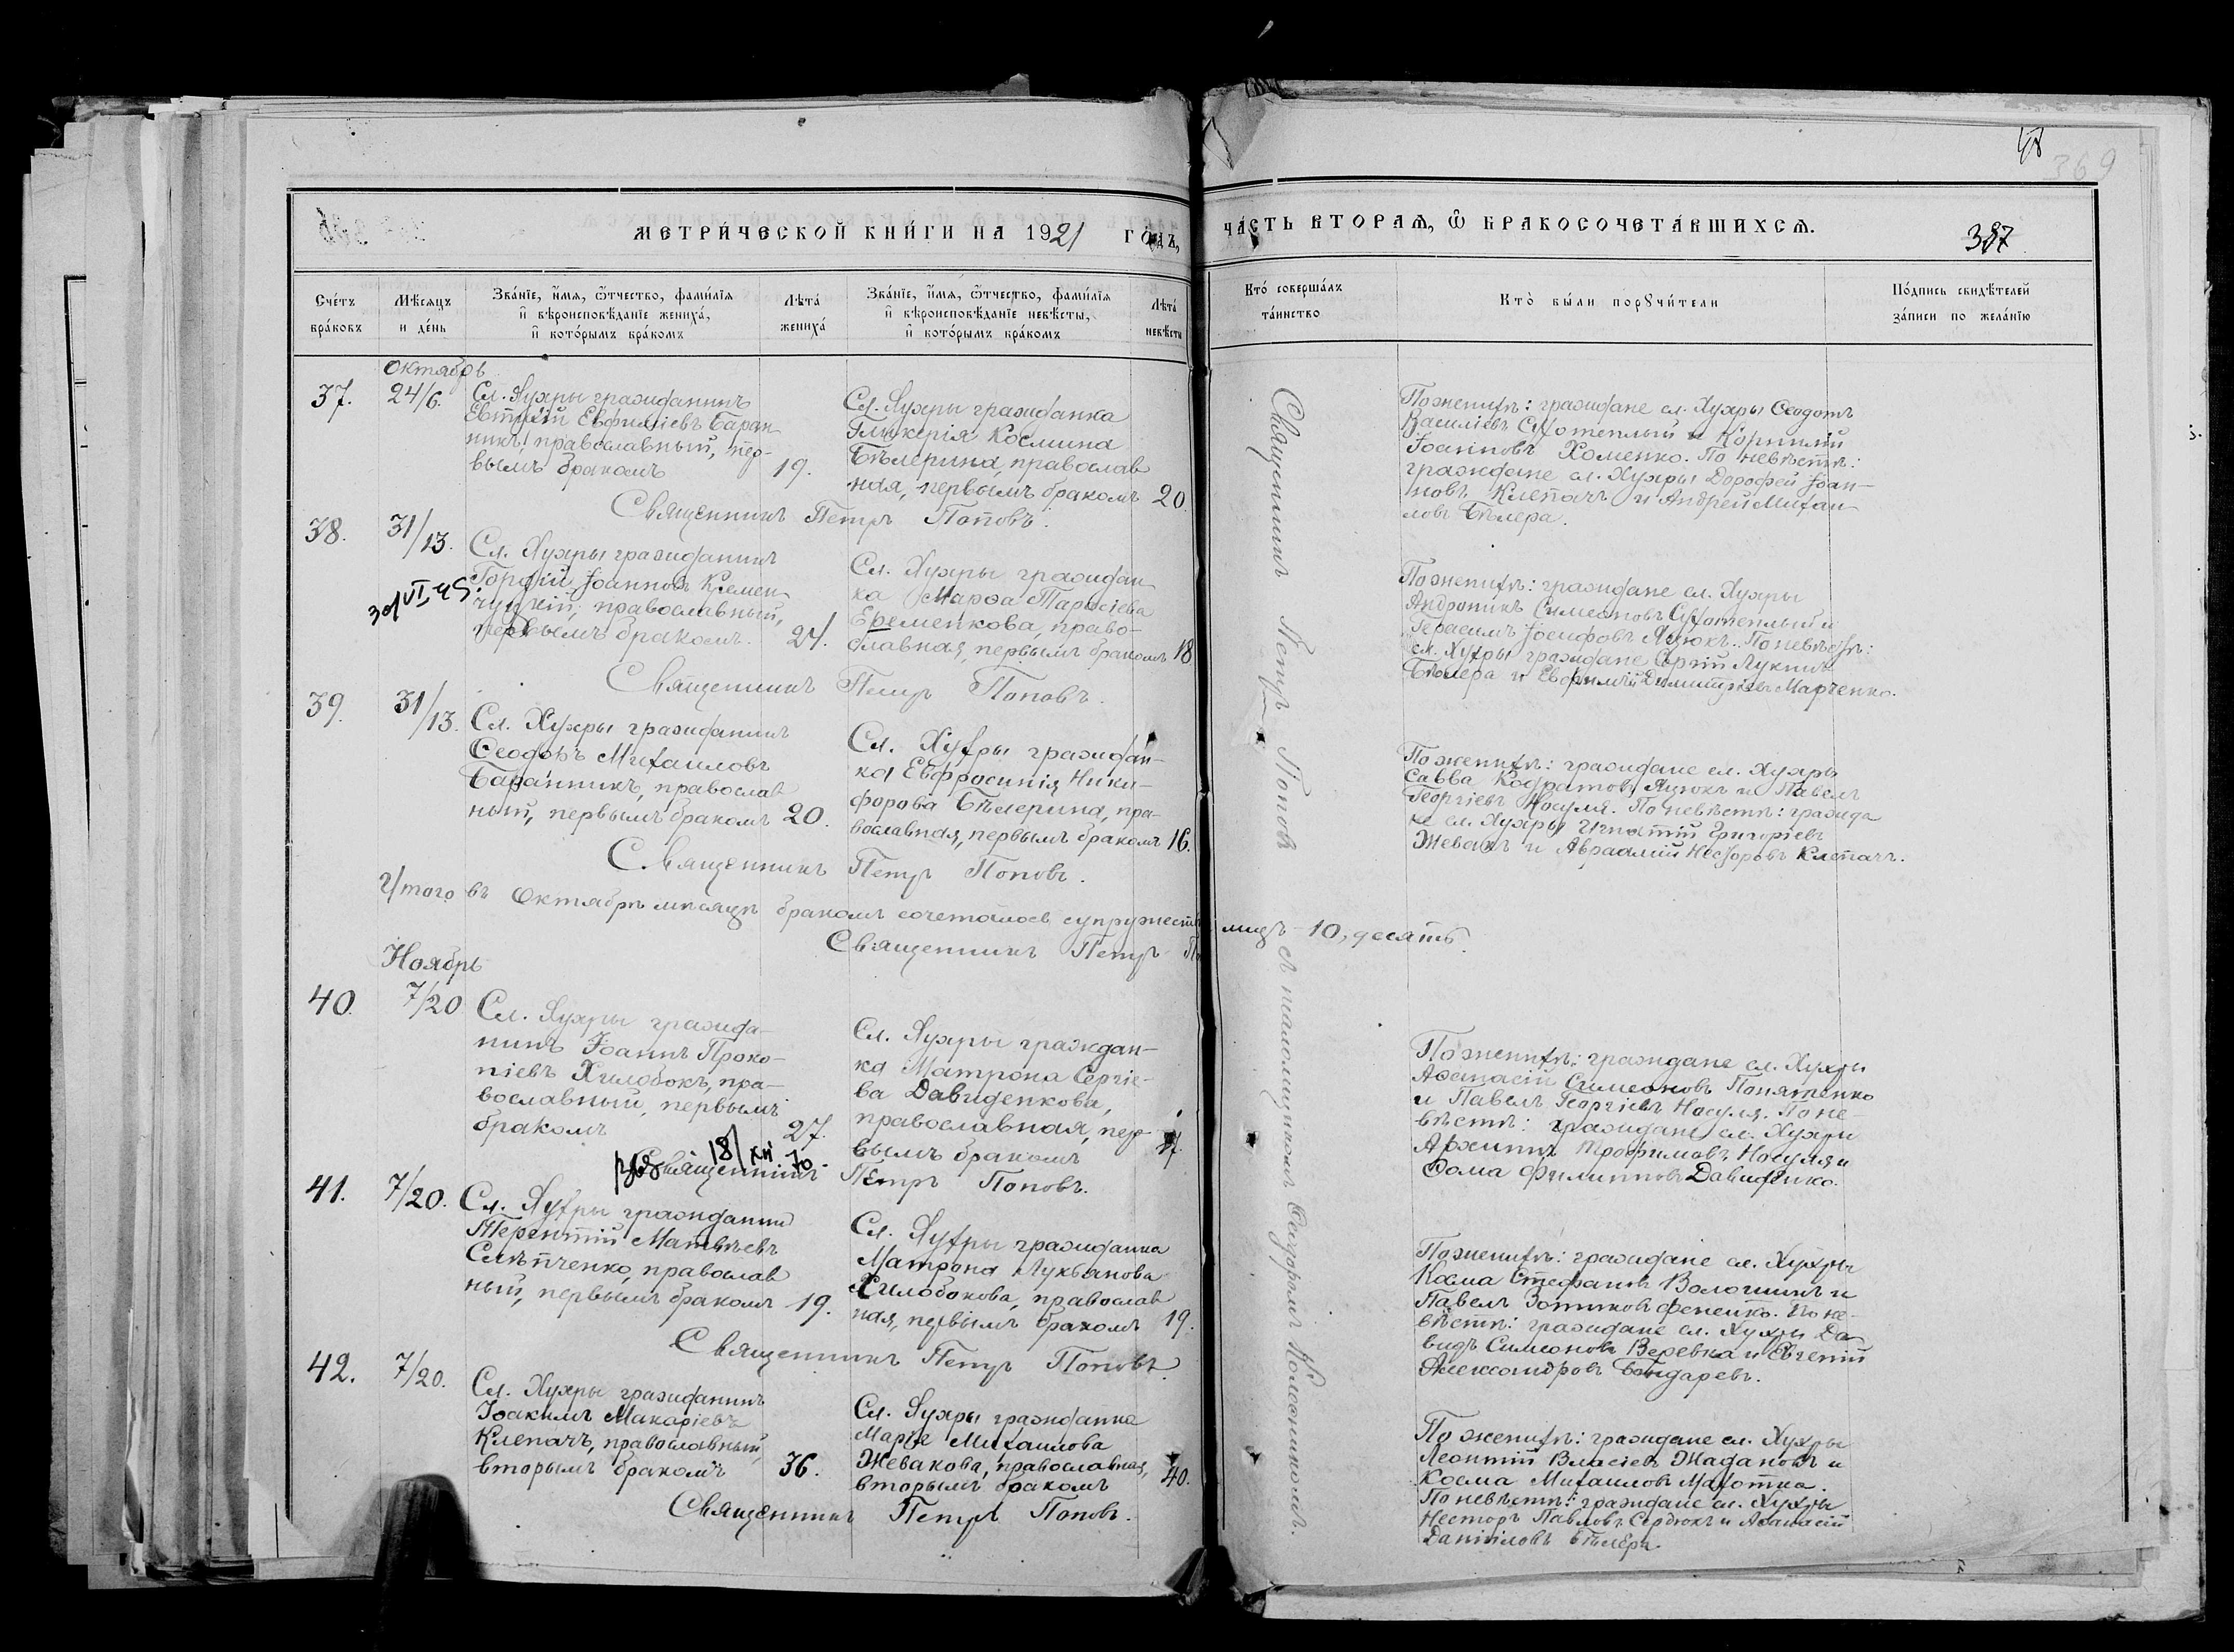 МЕТРИ́ЧЕСКОЙ КНИ́ГИ НА 1921 ГО́ДЪ,
ЧА́СТЬ ВТОРАѦ, Ѡ҆ БРАКОСОЧЕТА́ВШИХСѦ.
387
369
Сче́тъ бра́ковъ
Мѣ́сѧцъ и де́нь
Зва́нїе, и҆́мѧ, ѻ҆́тчество, фами́лїѧ
и҆ вѣроисповѣ́данїе жениха́,
и҆ кото́рымъ бра́комъ
Лѣта́ жениха́
Зва́нїе, и҆́мѧ, ѻ҆́тчество, фами́лїѧ
и҆ вѣроисповѣ́данїе невѣ́сты,
и҆ кото́рымъ бра́комъ
Лѣта́ невѣ́сты
Кто̀ соверша́лъ та́инство
Кто̀ бы́ли порꙋчи́тели
По́дпись свидѣ́телей за́писи по жела́нїю
Октябрь
37.
24/6.
Сл. Хухры гражданинъ
Евтихій Евфиміевъ Баран-
никъ, православный, пер-
вымъ бракомъ
19.
Сл. Хухры гражданка
Гликерія Космина
Бѣлерина, православ
ная, первымъ бракомъ
20.
Священникъ Петръ Поповъ.
По женихѣ: граждане сл. Хухры Ѳеодотъ
Василіевъ Сухотеплый и Корнилій
Іоанновъ Хоменко. По невѣстѣ:
граждане сл. Хухры Дорофей Іоан-
новъ Клепачъ и Андрей Михаи
ловъ Бѣлера.
38.
31/13.
Сл. Хухры гражданинъ
Іоанновъ Кремен
чуцкій, православный,
первымъ бракомъ.
24.
Сл. Хухры граждан
ка Марѳа Тарасіева
Еременкова, право-
славная, первымъ бракомъ
18
Священникъ Петръ Поповъ.
По женихѣ: граждане сл. Хухры
Андроникъ Симеоновъ Сухотеплый и
Герасимъ Іосифовъ Яцюкъ. По невѣстѣ:
сл. Хухры граждане Сергій Лукинъ
Бѣлера и Евфимій Димитріевъ Марченко.
39.
31/13.
Сл. Хухры гражданинъ
Ѳеодотъ Михаиловъ
Баранникъ, православ
ный, первымъ бракомъ
20.
Сл. Хухры граждан-
ка Евфросинія Ники-
форова Бѣлерина, пра-
вославная, первымъ бракомъ
16.
Священникъ Петръ Поповъ.
По женихѣ: граждане сл. Хухры
Савва Кодратовъ Яцюкъ и Павелъ
Георгіевъ Носуля. По невѣстѣ: гражда
не сл. Хухры Игнатій Григоріевъ
Жевакъ и Авраамій Несторовъ Клепачъ.
Итого въ Октябрѣ мѣсяцѣ бракомъ сочеталось супружеств лицъ 10, десять.
Священникъ Петръ
Ноябрь
40.
7/20
Сл. Хухры гражда-
нинъ Іоаннъ Проко-
піевъ Хилобокъ, пра-
вославный, первымъ
бракомъ
27.
Сл. Хухры граждан-
ка Матрона Сергіе-
ва Давиденкова,
православная, пер-
вымъ бракомъ
18/XII 70.
Священникъ Петръ Поповъ.
По женихѣ: граждане сл. Хухры
Аѳанасій Симеоновъ Понятенко
и Павелъ Георгіевъ Носуля. По не-
вѣстѣ: граждане сл. Хухры
Архиппъ Трофимовъ Носуля и
Ѳома Филипповъ Давиденко.
41.
7/20.
Сл. Хухры гражданинъ
Терентій Матвѣевъ
Слѣпченко, православ
ный, первымъ бракомъ
19.
Сл. Хухры гражданка
Матрона Лукьянова
Хилобокова, православ
ная, первымъ бракомъ
19.
Священникъ Петръ Поповъ.
По женихѣ: граждане сл. Хухры
Косма Стефановъ Волошинъ и
Павелъ Зотиковъ Фененко. По не-
вѣстѣ: граждане сл. Хухры Да
видъ Симеоновъ Веревка и Евгеній
Александровъ Бондаревъ.
42.
7/20.
Сл. Хухры гражданинъ
Іоакимъ Макаріевъ
Клепачъ, православный,
вторымъ бракомъ
36.
Сл. Хухры гражданка
Марія Михаилова
Жевакова, православная,
вторымъ бракомъ
40.
Священникъ Петръ Поповъ.
По женихѣ: граждане сл. Хухры
Леонтій Власіевъ Жадановъ и
Косма Михаиловъ Махотка.
По невѣстѣ: граждане сл. Хухры
Несторъ Павловъ Сердюкъ и Аѳанасій
Даніиловъ Бѣлера.
Священникъ Петръ Поповъ съ псаломщикомъ Ѳеодоромъ Колесниковымъ.